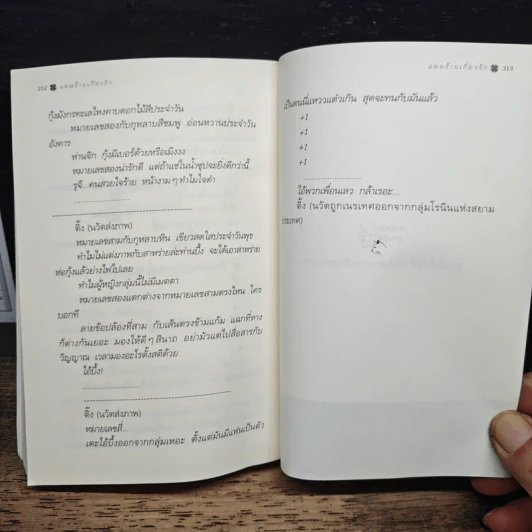 312 แผนร้ายเกี้ยวรัก
กุ้งมังกรทะเลไหงคาบดอกไม้สีประจำวัน
หมายเลขสองกับกุหลาบสีชมพู อ่อนหวานประจำวัน
อังคาร
ห่านจิก กุ้งมีเบอร์ด้วยหรือเมิงงง
หมายเลขสองน่ารักดี แต่ถ้าแช่ในน้ำซุปจะยิ่งดีกว่านี้
รุจี...คนสวยใจร้าย หน้างามๆ ทำไมใจดำ
..............................
ติ๊ง (นวัตส่งภาพ)
หมายเลขสามกับกุหลาบหิน เขียวสดใสประจำวันพุธ
ทำไมไม่แต่งภาพกับสาหร่ายล่ะท่านบึ้ง จะได้เอาสาหร่าย
ห่อกุ้งแล้วย่างไฟไปเลย
ทำไมผู้หญิงกลุ่มนี้ไม่มีเมตตา
หมายเลขสองแตกต่างจากหมายเลขสามตรงไหน ใคร
บอกที
ลายข้อปล้องที่สาม กับเส้นตรงข้ามแก้ม แฉกที่หาง
ก็ต่างกันเยอะ มองให้ดีๆ สินาถ อย่ามัวแต่ไปสื่อสารกับ
วิญญาณ เวลามองอะไรตั้งสติด้วย
ไอ้บึ้ง!
....................
ติ๊ง (นวัตส่งภาพ)
หมายเลขสี่...
เตะไอ้บึ้งออกจากกลุ่มเหอะ ตั้งแต่มันมีแฟนเป็นตัว
แผนร้ายเกี้ยวรัก 313
เป็นตนนี่แหววแต๋วเกิน สุดจะทนกับมันแล้ว
+1
+1
+1
+1
....................
ไอ้พวกเพื่อนเลว กล้าเรอะ...
ติ๊ง (นวัตถูกเนรเทศออกจากกลุ่มโรนินแห่งสยาม
ประเทศ)